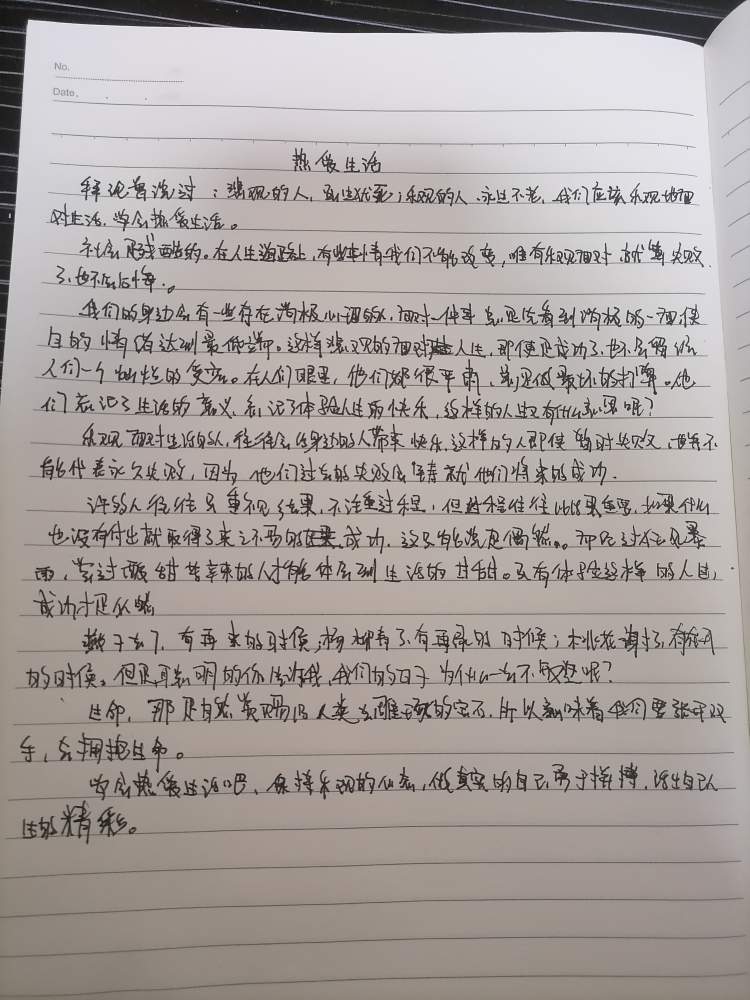 No.
Date.
热爱生活
拜伦曾说过：悲观的人，虽生犹死；乐观的人，永生不老，我们应该乐观地面
对生活，学会热爱生活。
社会是残酷的。在人生道路上，有些事情我们不能改变，唯有乐观面对，就算失败
了，也不会后悔。
我们的身边会有一些存在消极心理的人，面对一件事总是先看到消极的一面使
自的情绪达到最低端。这样悲观的面对人生，即便是成功了，也不会留给
人们一个灿烂的笑容。在人们眼里，他们都很平庸，总是做最坏的打算。他
们忘记了生活的意义，忘记了体验人生的快乐，这样的人生又有什么意思呢？
乐观面对生活的人，往往会给身边的人带来快乐，这样的人即使暂时失败，也并不
能代表永久失败，因为他们过去的失败会铸就他们将来的成功．
许多人往往只重视结果，不注重过程，但过程往往比结果重要，如果什么
也没有付出就取得了来之不易的成功，这只能说是偶然。。即已过狂风暴
雨，尝过酸甜苦辛来的人才能体会到生活的甘甜。只有体验这样的人生，
成功才是必然
燕子去了，有再来的时候；杨柳青了，有再绿的时候；桃花谢了，有再开
的时候。但是，聪明的你告诉我，我们的日子为什么一去不复返呢？
生命，那是自然给人类去雕琢的宝石，所以意味着我们要张开双
手，去拥抱生命。
学会热爱生活吧，保持乐观的心态，做真实的自己，勇于拼搏，活出自己人
生的精彩。